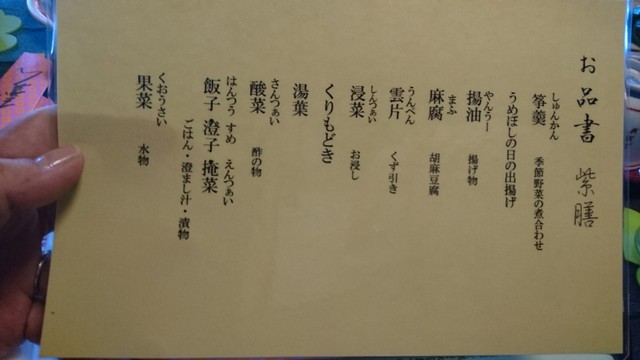 お品書 紫膳
しゅんかん
筝羹 季節野菜の煮合わせ
うめぼしの日の出揚げ
やんうー
揚油 揚げ物
まふ
麻腐 胡麻豆腐
うんぺん
雲片 くず引き
しんつぁい
浸菜 お浸し
くりもどき
湯葉
さんつぁい
酸菜 酢の物
はんつぅ すめ えんつぁい
飯子 澄子 掩菜
ごはん・澄まし汁・漬物
くおうさい
果菜 水物